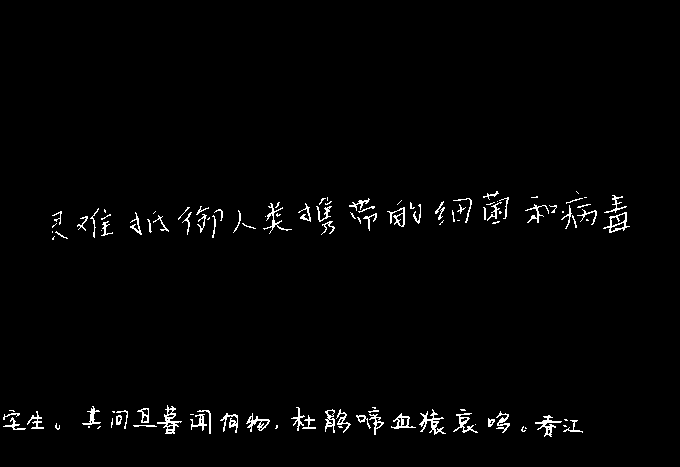 难抵御人类携带的细菌和病毒
宅生。其间旦暮闻何物,杜鹃啼血猿哀鸣。春江